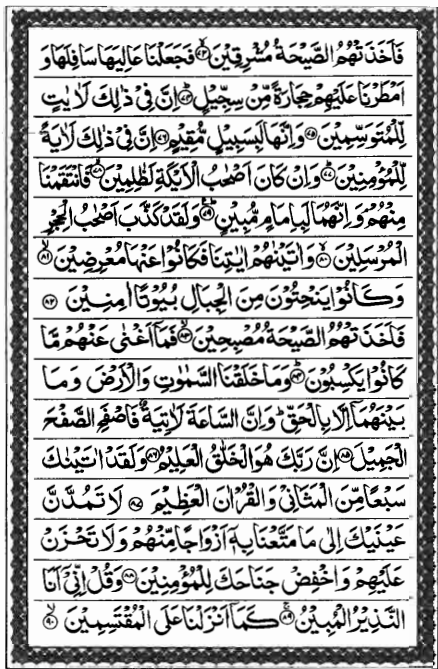 فَاَخَذَتْهُمُ الصَّيْحَةُ مُشْرِقِيْنَ ﴿۷۳﴾ فَجَعَلْنَا عَالِيَهَا سَافِلَهَا وَ
اَمْطَرْنَا عَلَيْهِمْ حِجَارَةً مِّنْ سِجِّيْلٍ ﴿۷۴﴾ اِنَّ فِيْ ذٰلِكَ لَاٰيٰتٍ
لِّلْمُتَوَسِّمِيْنَ ﴿۷۵﴾ وَاِنَّهَا لَبِسَبِيْلٍ مُّقِيْمٍ ﴿۷۶﴾ اِنَّ فِيْ ذٰلِكَ لَاٰيَةً
لِّلْمُؤْمِنِيْنَ ﴿۷۷﴾ وَاِنْ كَانَ اَصْحٰبُ الْاَيْكَةِ لَظٰلِمِيْنَ ﴿۷۸﴾ فَانْتَقَمْنَا
مِنْهُمْ وَاِنَّهُمَا لَبِاِمَامٍ مُّبِيْنٍ ﴿۷۹﴾ وَلَقَدْ كَذَّبَ اَصْحٰبُ الْحِجْرِ
الْمُرْسَلِيْنَ ﴿۸۰﴾ وَاٰتَيْنٰهُمْ اٰيٰتِنَا فَكَانُوْا عَنْهَا مُعْرِضِيْنَ ﴿۸۱﴾
وَكَانُوْا يَنْحِتُوْنَ مِنَ الْجِبَالِ بُيُوْتًا اٰمِنِيْنَ ﴿۸۲﴾
فَاَخَذَتْهُمُ الصَّيْحَةُ مُصْبِحِيْنَ ﴿۸۳﴾ فَمَا اَغْنٰى عَنْهُمْ مَّا
كَانُوْا يَكْسِبُوْنَ ﴿۸۴﴾ وَمَا خَلَقْنَا السَّمٰوٰتِ وَالْاَرْضَ وَمَا
بَيْنَهُمَا اِلَّا بِالْحَقِّ ؕ وَاِنَّ السَّاعَةَ لَاٰتِيَةٌ فَاصْفَحِ الصَّفْحَ
الْجَمِيْلَ ﴿۸۵﴾ اِنَّ رَبَّكَ هُوَ الْخَلّٰقُ الْعَلِيْمُ ﴿۸۶﴾ وَلَقَدْ اٰتَيْنٰكَ
سَبْعًا مِّنَ الْمَثَانِيْ وَالْقُرْاٰنَ الْعَظِيْمَ ﴿۸۷﴾ لَا تَمُدَّنَّ
عَيْنَيْكَ اِلٰى مَا مَتَّعْنَا بِهٖٓ اَزْوَاجًا مِّنْهُمْ وَلَا تَحْزَنْ
عَلَيْهِمْ وَاخْفِضْ جَنَاحَكَ لِلْمُؤْمِنِيْنَ ﴿۸۸﴾ وَقُلْ اِنِّيْٓ اَنَا
النَّذِيْرُ الْمُبِيْنُ ﴿۸۹﴾ كَمَآ اَنْزَلْنَا عَلَى الْمُقْتَسِمِيْنَ ﴿۹۰﴾